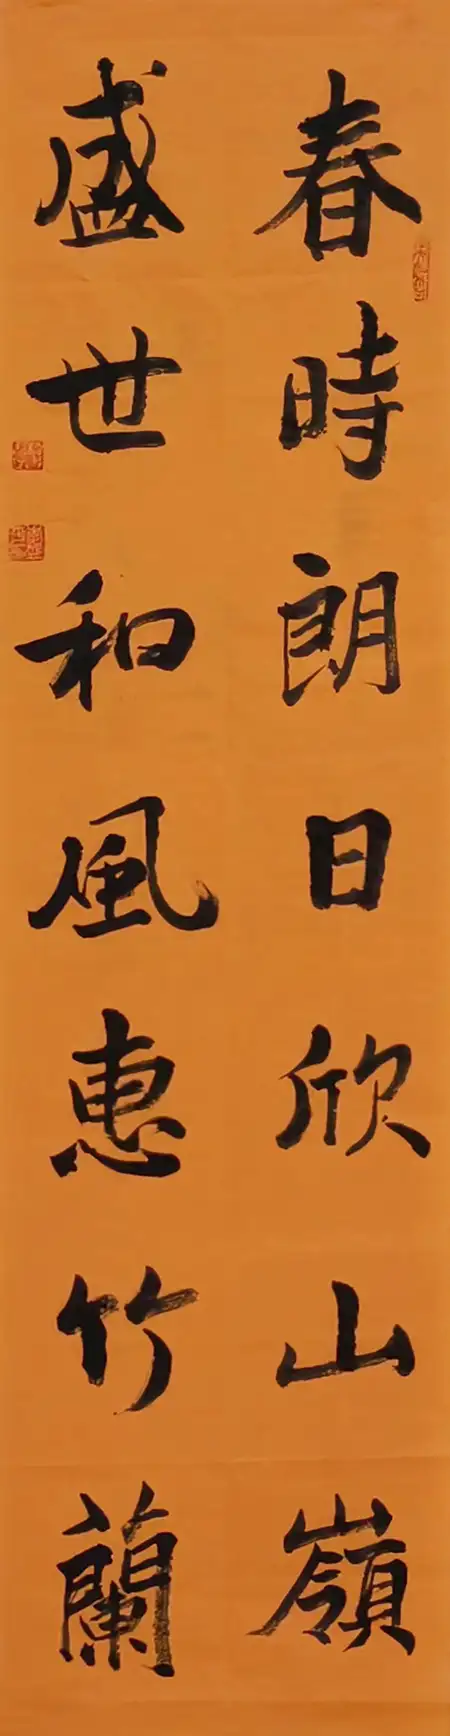 春時朗日欣山嶺
盛世和風惠竹蘭